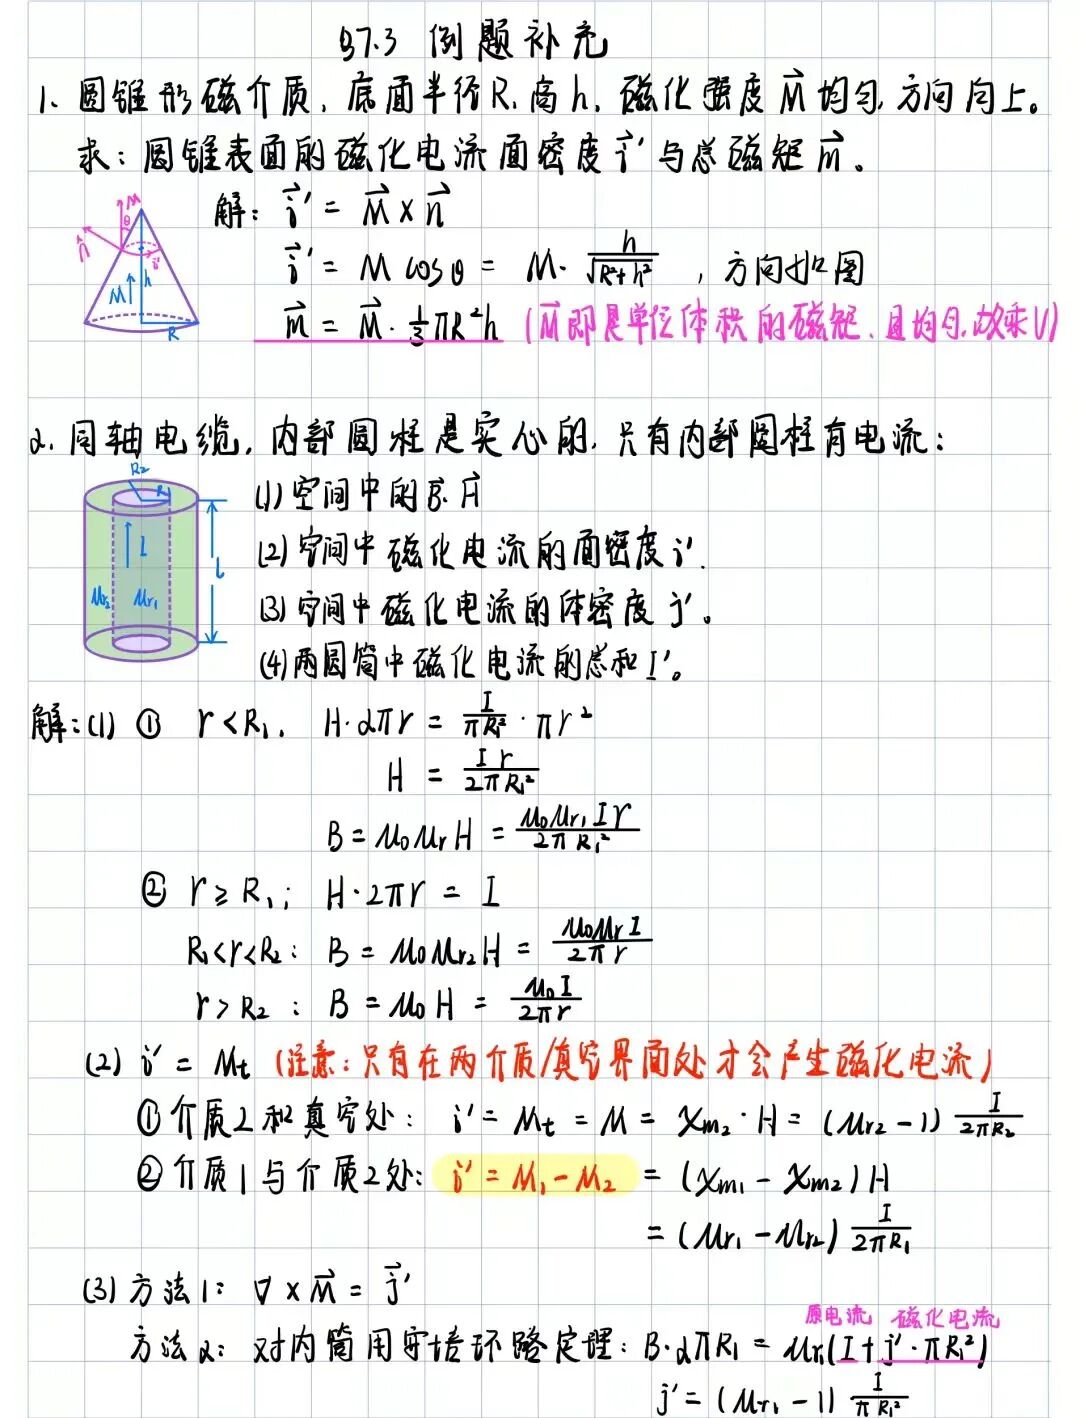 §7.3 例题补充
1、圆锥形磁介质，底面半径R，高h，磁化强度M⃗均匀，方向向上。
求：圆锥表面的磁化电流面密度i⃗'与总磁矩m⃗。
解：i⃗' = M⃗ × n⃗
i⃗' = M cosθ = M · h/√(R²+h²)，方向如图
m⃗ = M⃗ · 1/3 πR²h (M⃗即是单位体积的磁矩，且均匀，故乘V)
M
θ
n⃗
i'
M
h
R
2、同轴电缆，内部圆柱是实心的，只有内部圆柱有电流：
(1) 空间中的B⃗、H⃗
(2) 空间中磁化电流的面密度i'.
(3) 空间中磁化电流的体密度j'。
(4) 两圆筒中磁化电流的总和I'。
R₂
R₁
I
L
μr₂
μr₁
解：(1) ① r<R₁，H·2πr = I/πR₁² · πr²
H = Ir/2πR₁²
B = μ₀μrH = μ₀μr₁Ir/2πR₁²
② r≥R₁； H·2πr = I
R₁<r<R₂： B = μ₀μr₂H = μ₀μrI/2πr
r>R₂ ： B = μ₀H = μ₀I/2πr
(2) i' = Mt (注意：只有在两介质/真空界面处才会产生磁化电流)
①介质2和真空处： i' = Mt = M = χm₂·H = (μr₂-1) I/2πR₂
②介质1与介质2处： i' = M₁-M₂ = (χm₁-χm₂)H
= (μr₁-μr₂) I/2πR₁
(3) 方法1： ∇×M⃗ = j⃗'
原电流 磁化电流
方法2： 对内筒用安培环路定理：B·2πR₁ = μr₁(I+j'·πR₁²)
j' = (μr₁-1) I/πR₁²